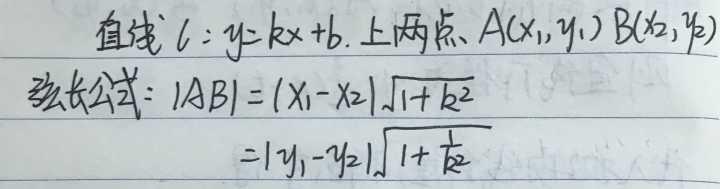 直线 l: y=kx+b. 上两点、A(x₁,y₁) B(x₂,y₂)
弦长公式: |AB| = |x₁-x₂|√(1+k²)
=|y₁-y₂|√(1+1/k²)